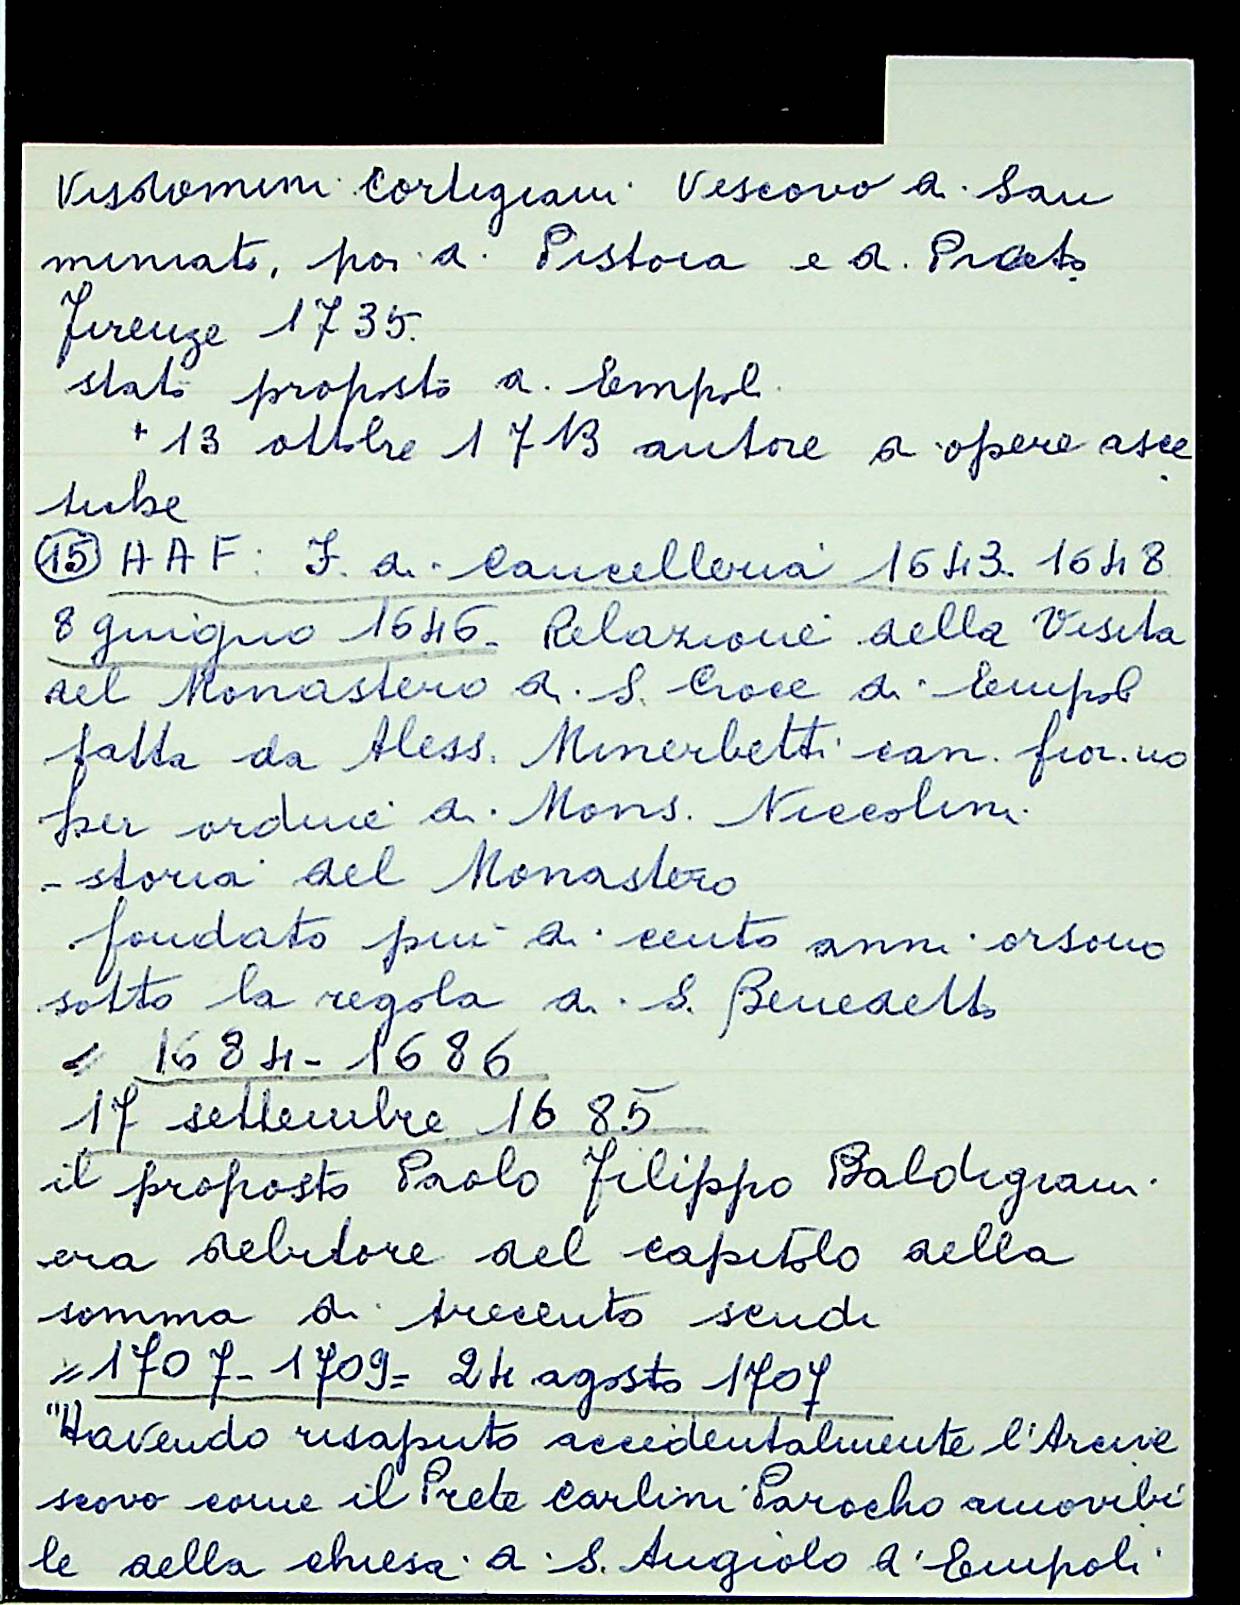 Visdomini Cortigiani Vescovo di San
Miniato, poi di Pistoia e di Prato
Firenze 1735.
stato proposto di Empoli
+ 13 ottobre 1713 autore di opere asce
tiche
(15) AAF: F. di Cancelleria 1643-1648
8 giugno 1646- Relazione della Visita
del Monastero di S. Croce di Empoli
fatta da Aless. Minerbetti can. fior.no
per ordine di Mons. Niccolini
- storia del Monastero
fondato più di cento anni orsono
sotto la regola di S. Benedetto
= 1684-1686
17 settembre 1685
il proposto Paolo Filippo Baldigiani
era debitore del capitolo della
somma di trecento scudi
= 1707-1709= 24 agosto 1707
"Havendo risaputo accidentalmente l'Arcive
scovo come il Prete Carlini Parocho amovibi
le della chiesa di S. Angiolo d'Empoli